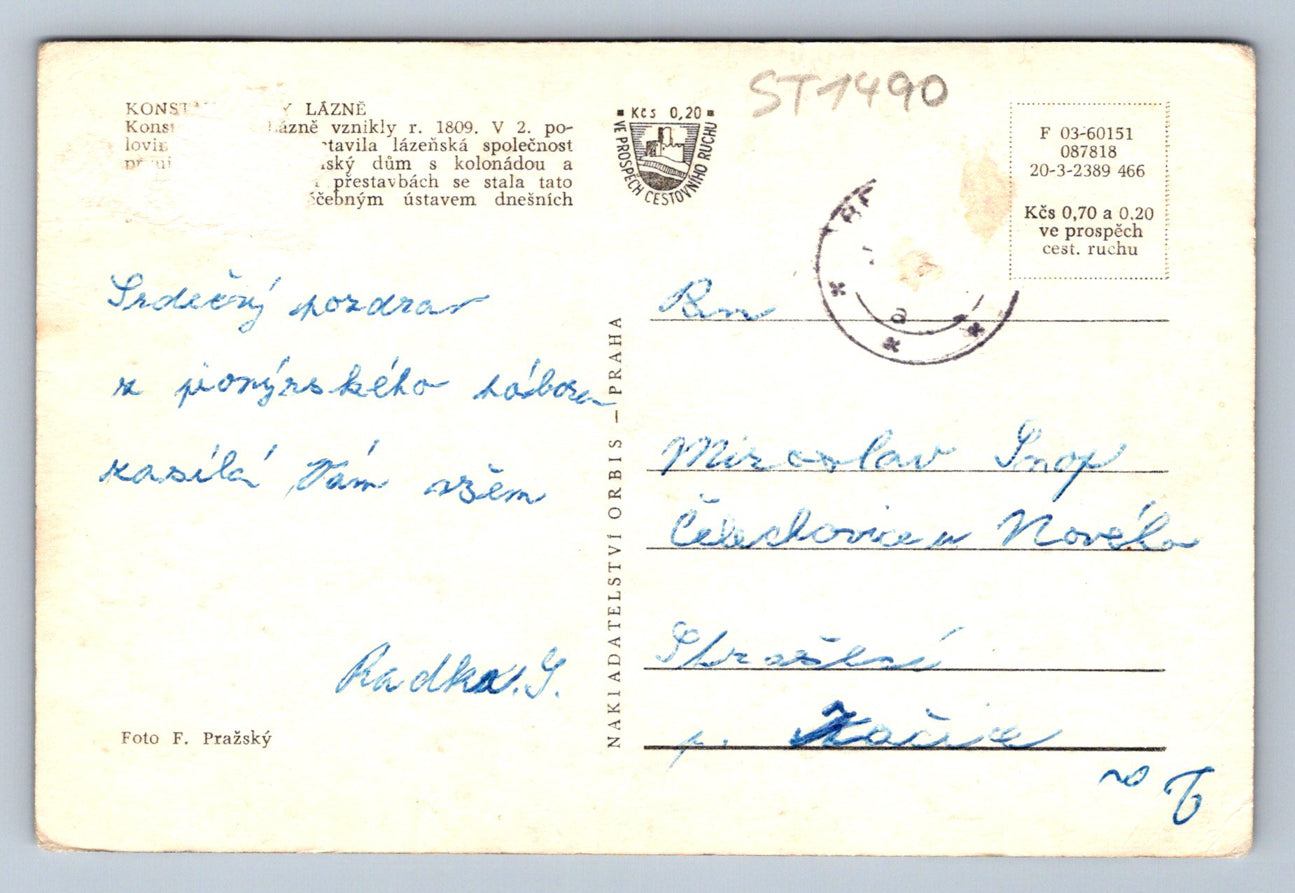 KONST Y LÁZNĚ
Konst Lázně vznikly r. 1809. V 2. po-
lovin tavila lázeňská společnost
ský dům s kolonádou a
přestavbách se stala tato
éčebným ústavem dnešních
Kčs 0,20
VE PROSPĚCH CESTOVNÍHO RUCHU
ST1490
F 03-60151
087818
20-3-2389 466
Kčs 0,70 a 0.20
ve prospěch
cest. ruchu
a
Srdečný pozdrav
z pionýrského tábora
zasílá Vám všem
Radka. S.
Foto F. Pražský
NAKLADATELSTVÍ ORBIS — PRAHA
Miroslav Snop
Čelechovice u Nového
Strašecí
p. Kačice